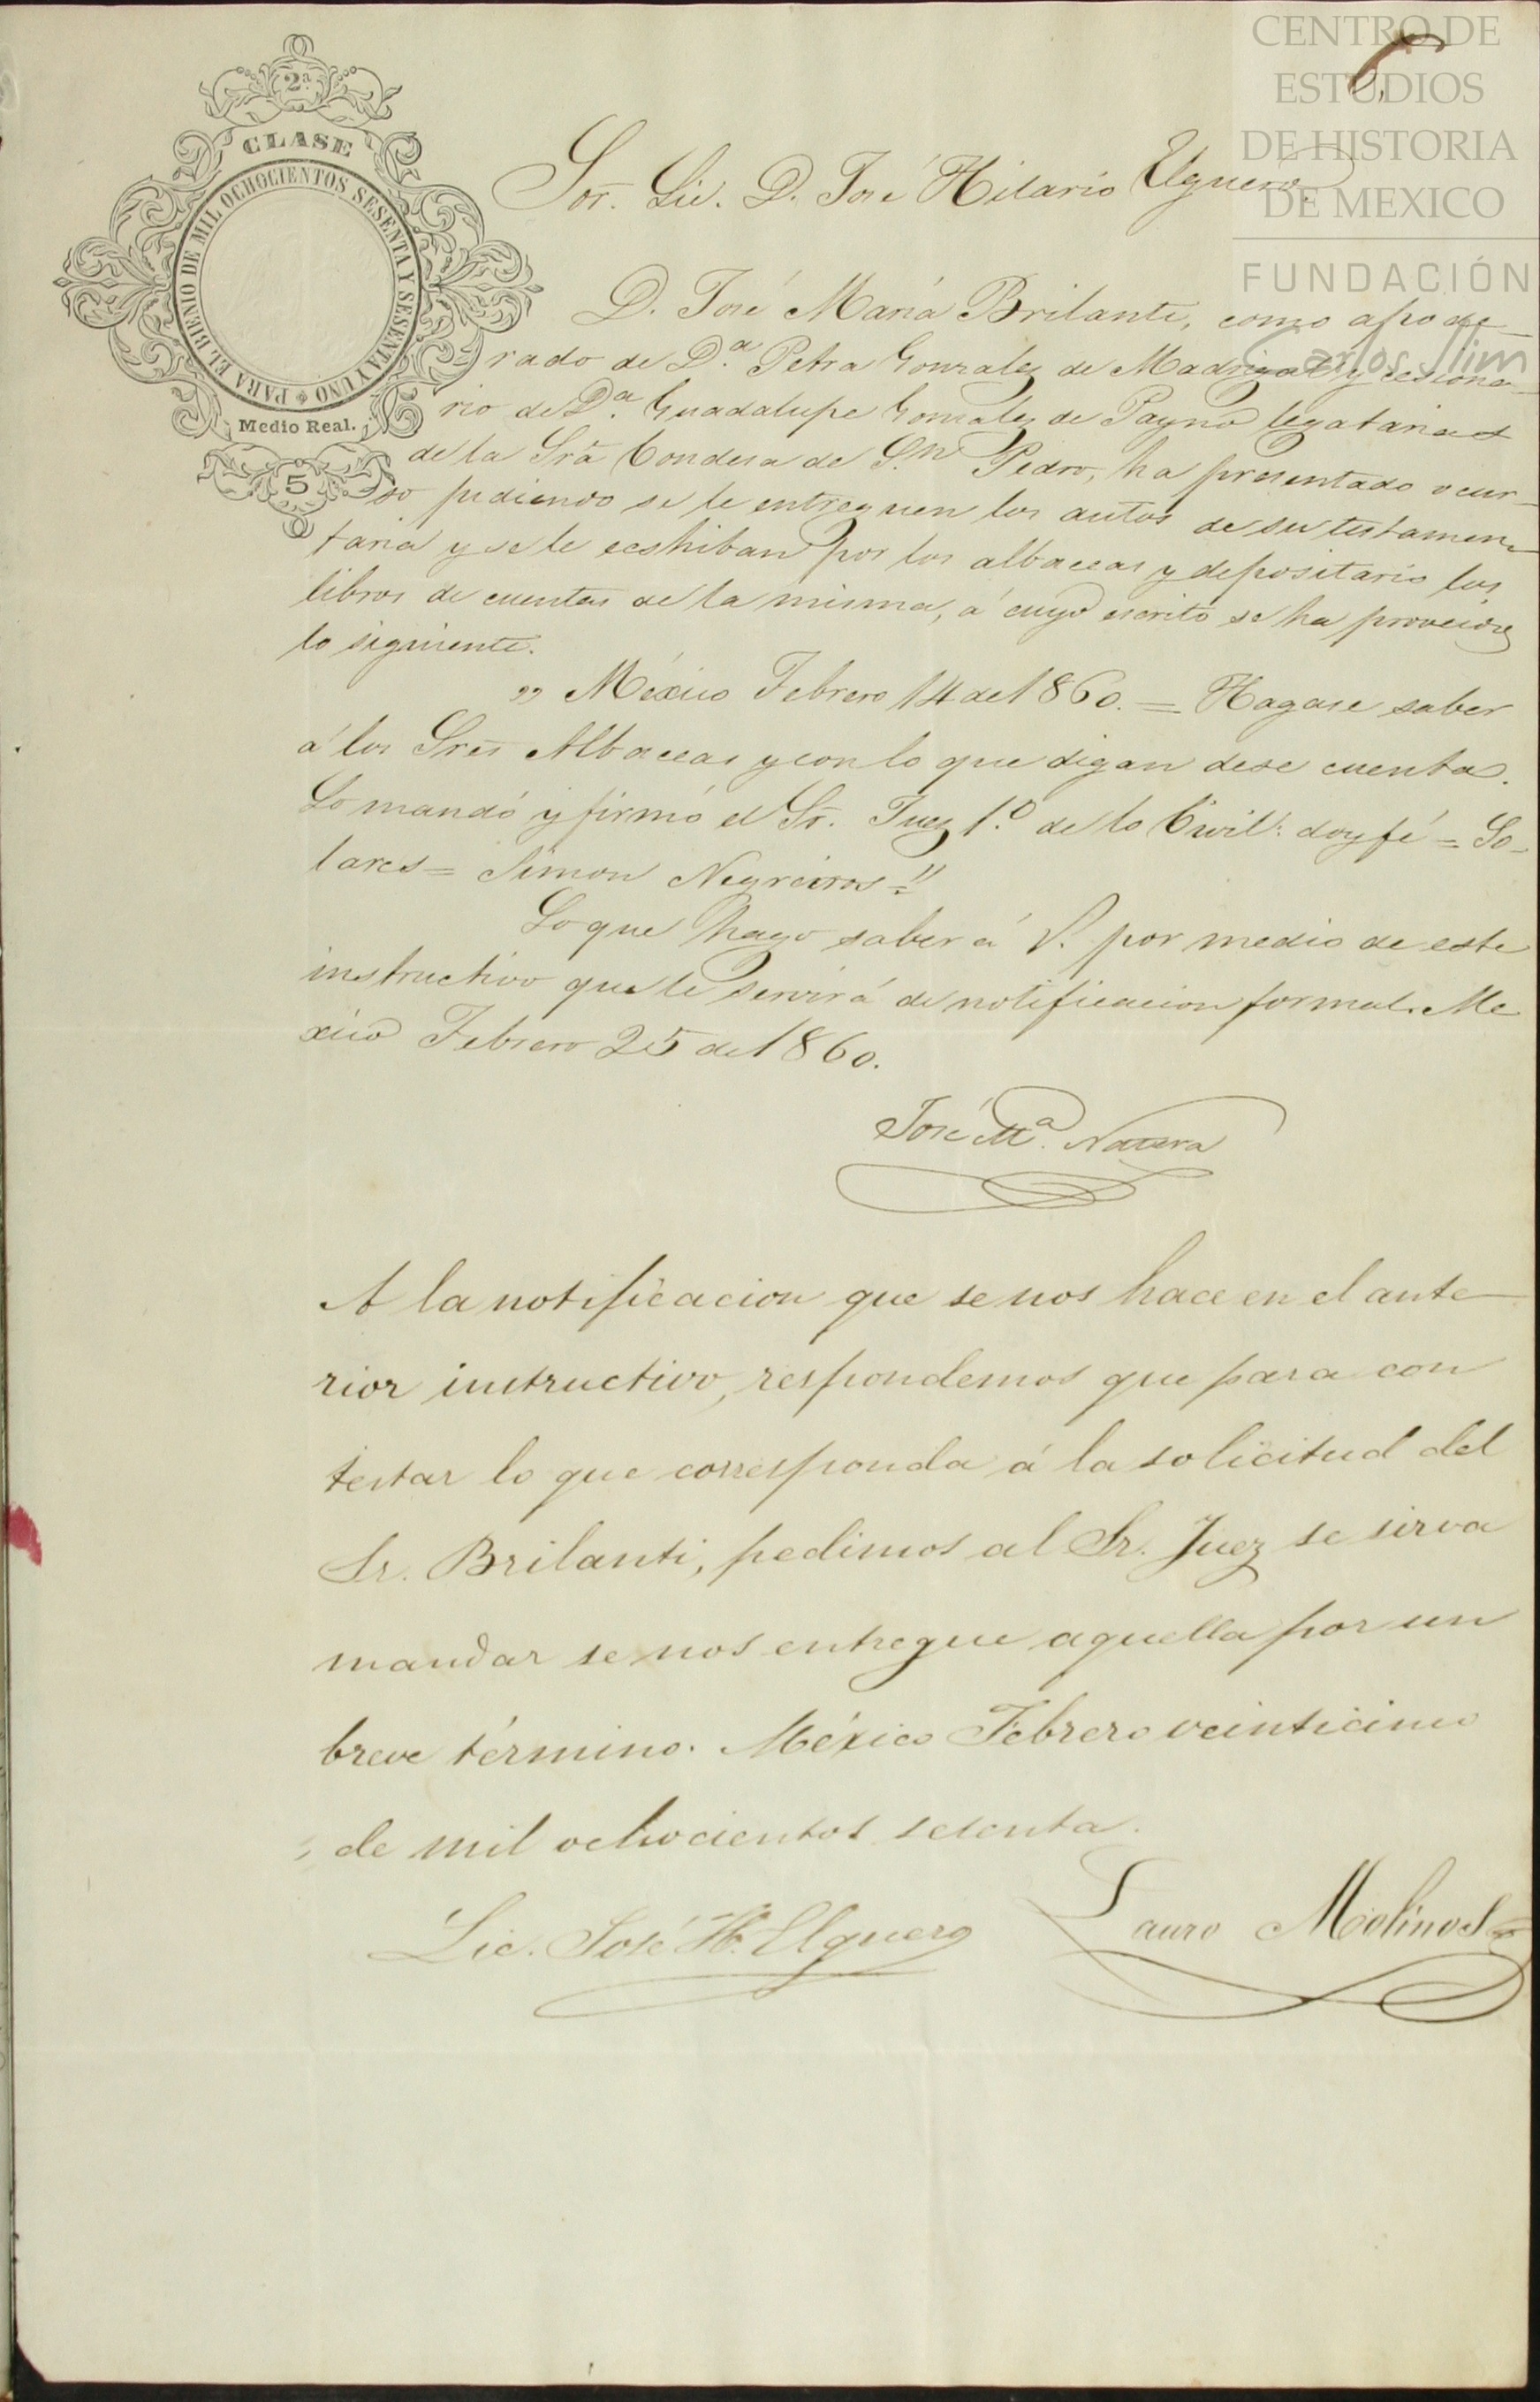 CENTRO DE
ESTUDIOS
DE HISTORIA
DE MEXICO
FUNDACIÓN
Carlos Slim
2ª
CLASE
PARA EL BIENIO DE MIL OCHOCIENTOS SESENTA Y SESENTA Y UNO
Medio Real.
5
Sor. Lic. D. José Hilario Elguero.
D. José María Brilanti, como apode-
rado de D.ª Petra Gonzalez de Madrigal y cesiona-
rio de D.ª Guadalupe Gonzalez de Payno legatarias
de la Srã Condesa de S.n Pedro, ha presentado ocur-
so pidiendo se le entreguen los autos de su testamen-
taria y se le ecshiban por los albaceas y depositario los
libros de cuentas de la misma, á cuyo escrito se ha proveido
lo siguiente.
„ México Febrero 14 de 1860. = Hagase saber
á los Sres Albaceas y con lo que digan dese cuenta.
Lo mandó y firmó el Sr. Juez 1.º de lo Civil: doy fé = So-
lares = Simon Negreiros = "
Lo que hago saber á V. por medio de este
instructivo que le servirá de notificacion formal. Me
xico Febrero 25 de 1860.
José Mª. Natera
A la notificacion que se nos hace en el ante-
rior instructivo, respondemos que para con
testar lo que corresponda á la solicitud del
Sr. Brilanti, pedimos al Sr. Juez se sirva
mandar se nos entregue aquella por un
breve término. México Febrero veinticinco
de mil ochocientos sesenta.
Lic. José H. Elguero
Lauro Molinos